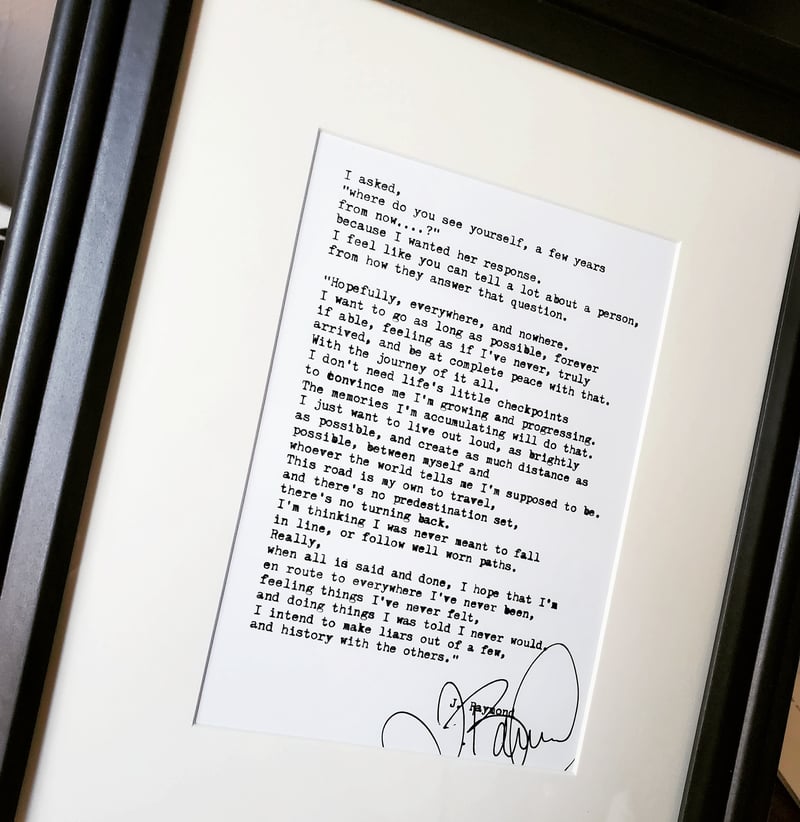 I asked,
"where do you see yourself, a few years
from now....?"
because I wanted her response.
I feel like you can tell a lot about a person,
from how they answer that question.
"Hopefully, everywhere, and nowhere.
I want to go as long as possible, forever
if able, feeling as if I've never, truly
arrived, and be at complete peace with that.
With the journey of it all.
I don't need life's little checkpoints
to convince me I'm growing and progressing.
The memories I'm accumulating will do that.
I just want to live out loud, as brightly
as possible, and create as much distance as
possible, between myself and
whoever the world tells me I'm supposed to be.
This road is my own to travel,
and there's no predestination set,
there's no turning back.
I'm thinking I was never meant to fall
in line, or follow well worn paths.
Really,
when all is said and done, I hope that I'm
en route to everywhere I've never been,
feeling things I've never felt,
and doing things I was told I never would.
I intend to make liars out of a few,
and history with the others."
J. Raymond